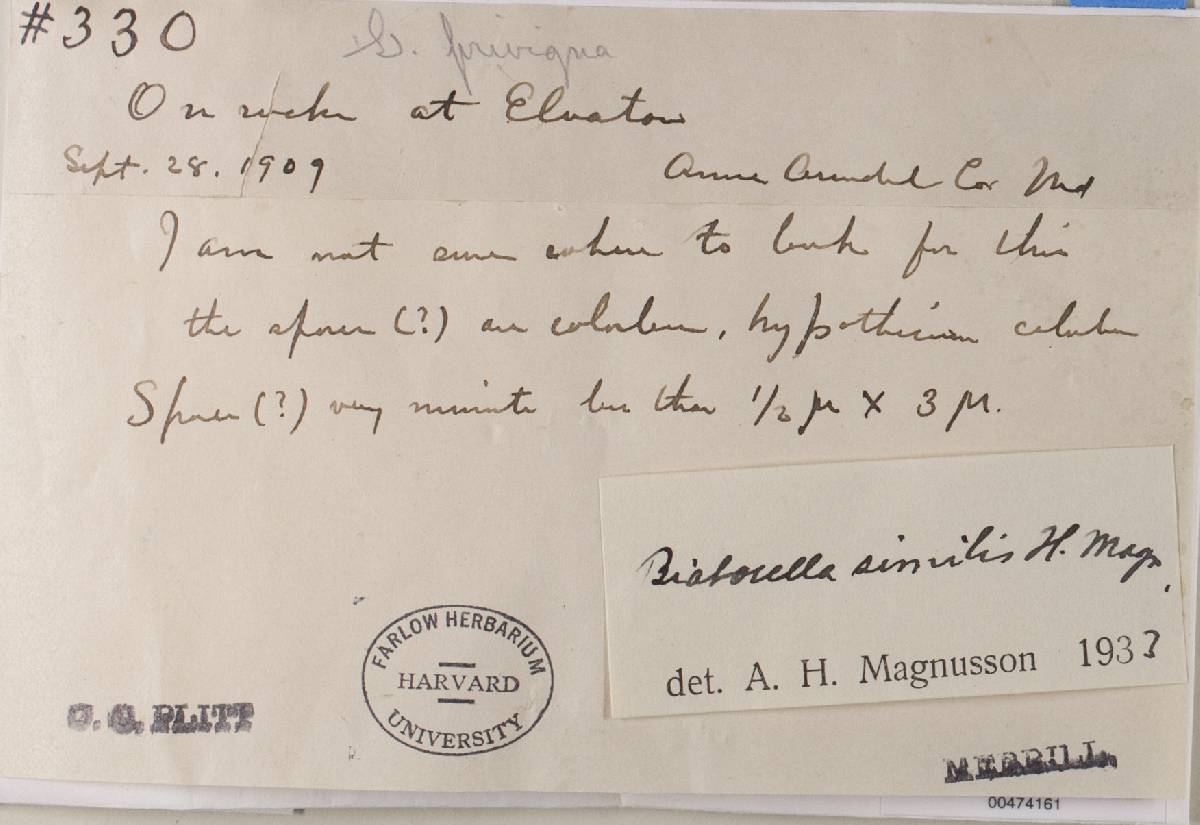 #330
G. privigna
On rocks at Elvaton
Sept. 28. 1909 Anne Arundel Co. Md
I am not sure where to look for this
the spores (?) are colorless, hypothecium colorless
Spores (?) very minute less than 1/2 µ X 3 µ.
Biatorella similis H. Magn.
det. A. H. Magnusson 1933
FARLOW HERBARIUM
HARVARD
UNIVERSITY
C. C. PLITT
MERRILL
00474161